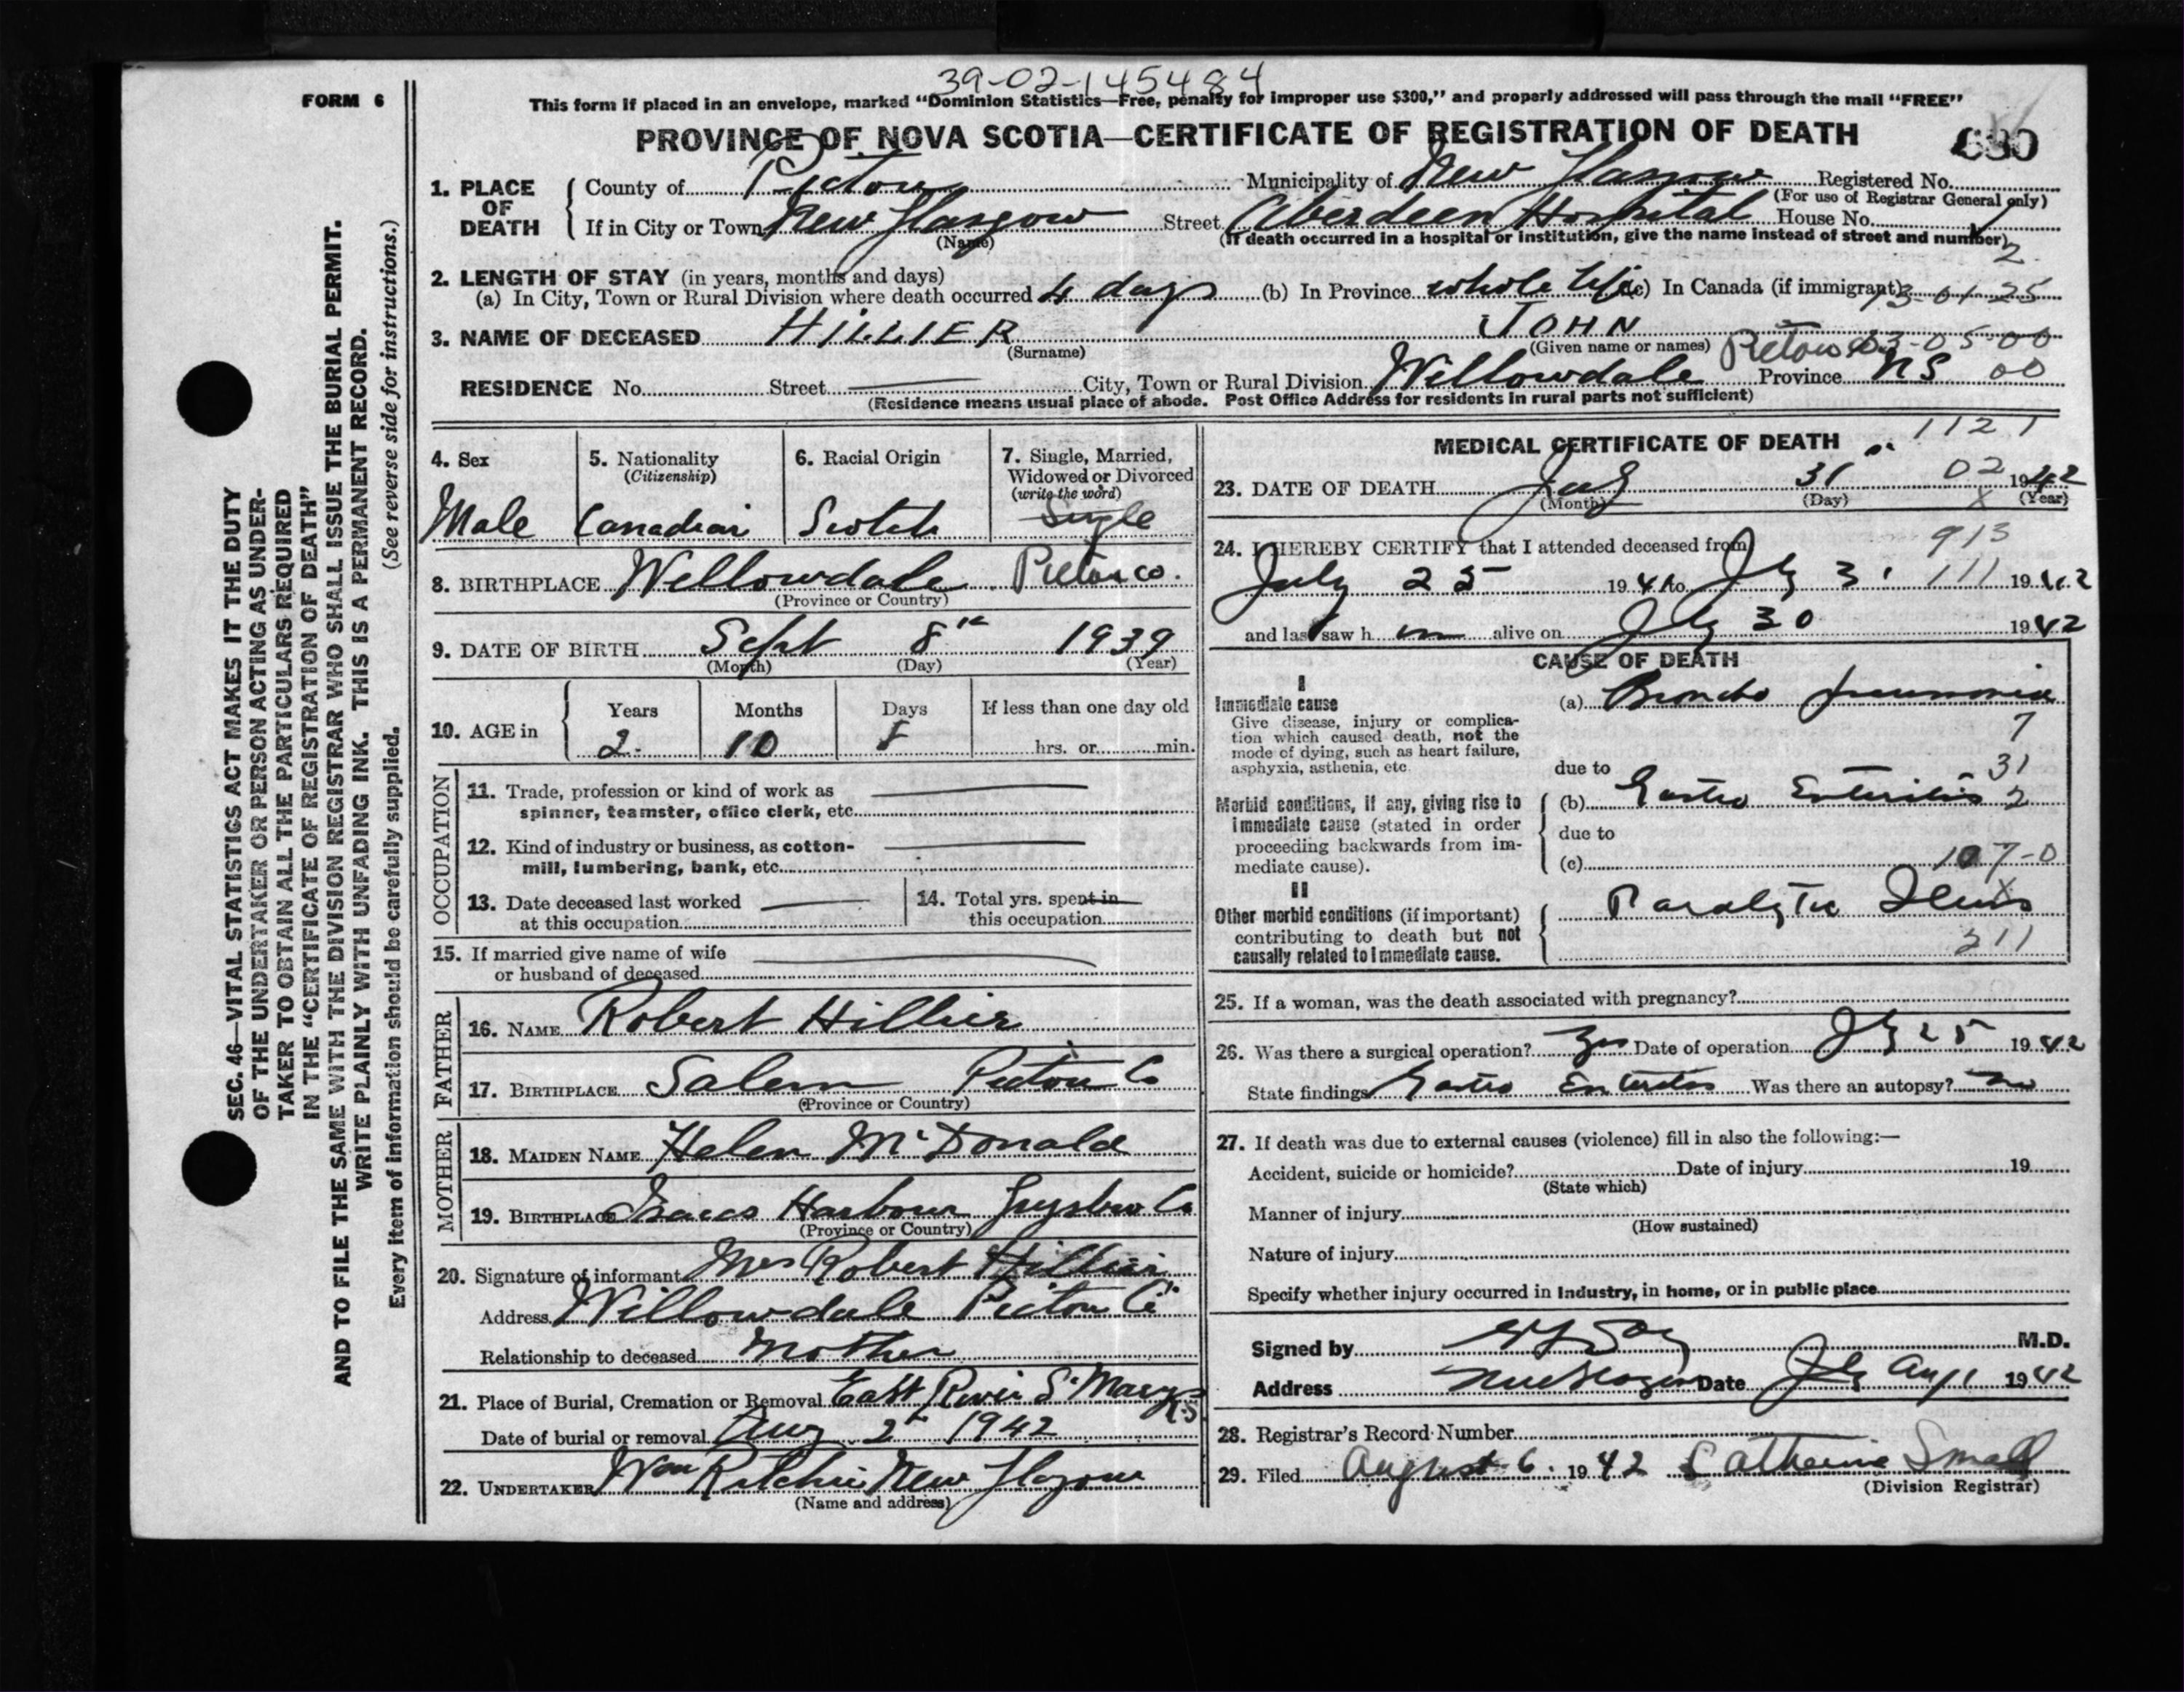 39-02-145484
FORM 6
This form if placed in an envelope, marked "Dominion Statistics—Free, penalty for improper use $300," and properly addressed will pass through the mail "FREE"
PROVINCE OF NOVA SCOTIA—CERTIFICATE OF REGISTRATION OF DEATH
SEC. 46—VITAL STATISTICS ACT MAKES IT THE DUTY
OF THE UNDERTAKER OR PERSON ACTING AS UNDER-
TAKER TO OBTAIN ALL THE PARTICULARS REQUIRED
IN THE "CERTIFICATE OF REGISTRATION OF DEATH"
AND TO FILE THE SAME WITH THE DIVISION REGISTRAR WHO SHALL ISSUE THE BURIAL PERMIT.
WRITE PLAINLY WITH UNFADING INK. THIS IS A PERMANENT RECORD.
(See reverse side for instructions.)
Every item of information should be carefully supplied.
1. PLACE OF DEATH
County of Pictou Municipality of New Glasgow Registered No.
(For use of Registrar General only)
If in City or Town New Glasgow Street Aberdeen Hospital House No.
(Name) (If death occurred in a hospital or institution, give the name instead of street and number)
2
2. LENGTH OF STAY (in years, months and days)
(a) In City, Town or Rural Division where death occurred 4 days (b) In Province whole life (c) In Canada (if immigrant)
3. NAME OF DECEASED HILLIER JOHN
(Surname) (Given name or names)
Pictou Co. 63-05 00
RESIDENCE No. Street City, Town or Rural Division Willowdale Province NS 00
(Residence means usual place of abode. Post Office Address for residents in rural parts not sufficient)
4. Sex
Male
5. Nationality
(Citizenship)
Canadian
6. Racial Origin
Scotch
7. Single, Married,
Widowed or Divorced
(write the word)
Single
8. BIRTHPLACE Willowdale Pictou co.
(Province or Country)
9. DATE OF BIRTH Sept 8th 1939
(Month) (Day) (Year)
10. AGE in
Years Months Days If less than one day old
2 10 hrs. or min.
OCCUPATION
11. Trade, profession or kind of work as
spinner, teamster, office clerk, etc.
12. Kind of industry or business, as cotton-
mill, lumbering, bank, etc.
13. Date deceased last worked
at this occupation
14. Total yrs. spent in
this occupation
15. If married give name of wife
or husband of deceased
FATHER
16. NAME Robert Hillier
17. BIRTHPLACE Salem Pictou Co
(Province or Country)
MOTHER
18. MAIDEN NAME Helen McDonald
19. BIRTHPLACE Isaacs Harbour Guysboro Co
(Province or Country)
20. Signature of informant Mrs Robert Hillier
Address Willowdale Pictou Co
Relationship to deceased Mother
21. Place of Burial, Cremation or Removal East River St Marys N.S.
Date of burial or removal Aug 2 1942
22. UNDERTAKER Wm Ritchie New Glasgow
(Name and address)
MEDICAL CERTIFICATE OF DEATH
1121
23. DATE OF DEATH July 31 02 1942
(Month) (Day) (Year)
24. I HEREBY CERTIFY that I attended deceased from
913
July 25 1942 to July 31 111 1942
and last saw h im alive on July 30 1942
CAUSE OF DEATH
I
Immediate cause
Give disease, injury or complica-
tion which caused death, not the
mode of dying, such as heart failure,
asphyxia, asthenia, etc.
(a) Broncho pneumonia
7
due to
31
Morbid conditions, if any, giving rise to
immediate cause (stated in order
proceeding backwards from im-
mediate cause).
(b) Gastro Enteritis 2
due to
(c) 107-0
II
Other morbid conditions (if important)
contributing to death but not
causally related to immediate cause.
Paralytic Ileus
211
25. If a woman, was the death associated with pregnancy?
26. Was there a surgical operation? Yes Date of operation July 25 1942
State findings Gastro Enteritis Was there an autopsy? no
27. If death was due to external causes (violence) fill in also the following:—
Accident, suicide or homicide? Date of injury 19
(State which)
Manner of injury
(How sustained)
Nature of injury
Specify whether injury occurred in Industry, in home, or in public place
Signed by M.D.
Address New Glasgow Date July Aug 1 1942
28. Registrar's Record Number
29. Filed August 6. 1942 Catherine Small
(Division Registrar)